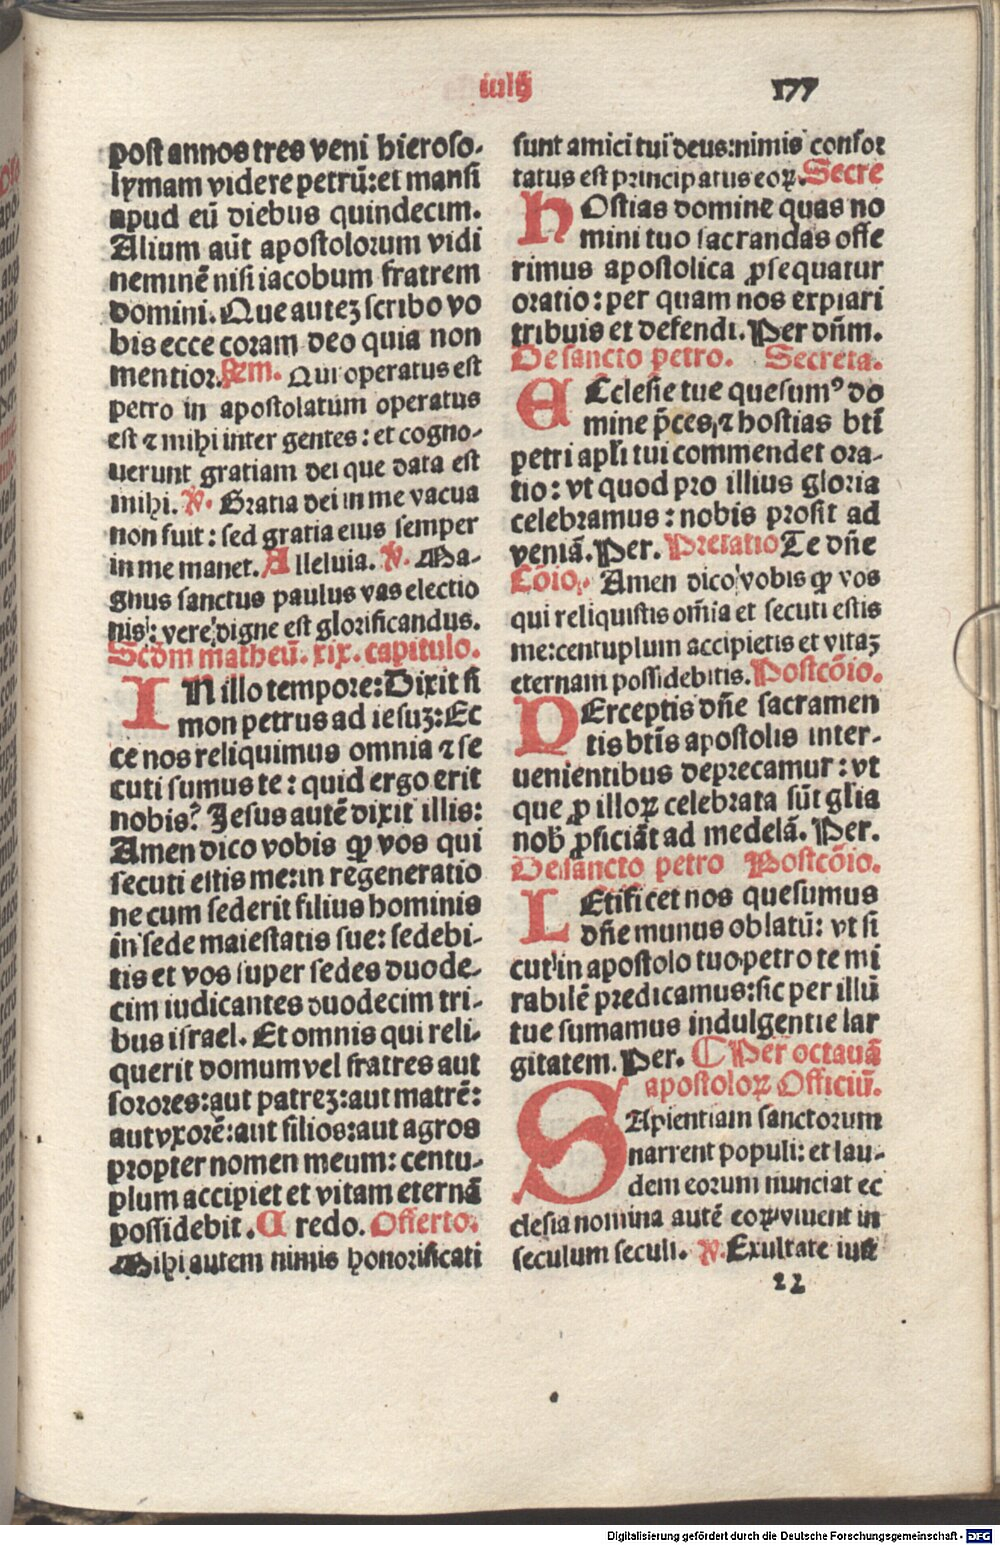 iulij
177
post annos tres veni hieroso-
lymam videre petrū: et mansi
apud eū diebus quindecim.
Alium aūt apostolorum vidi
neminē nisi iacobum fratrem
domini. Que autez scribo vo
bis ecce coram deo quia non
mentior. Qui operatus est
petro in apostolatum operatus
est ⁊ mihi inter gentes: et cogno-
uerunt gratiam dei que data est
mihi. ℣. Gratia dei in me vacua
non fuit: sed gratia eius semper
in me manet. Alleluia. ℣. Ma-
gnus sanctus paulus vas electio
nis: vere digne est glorificandus.
Scdm matheū. xix. capitulo.
IN illo tempore: Dixit si
mon petrus ad iesuz: Ec
ce nos reliquimus omnia ⁊ se
cuti sumus te: quid ergo erit
nobis? Jesus autē dixit illis:
Amen dico vobis ꝙ vos qui
secuti estis me: in regeneratio
ne cum sederit filius hominis
in sede maiestatis sue: sedebi-
tis et vos super sedes duode-
cim iudicantes duodecim tri-
bus israel. Et omnis qui reli-
querit domum vel fratres aut
sorores: aut patrez: aut matrē:
aut vxorē: aut filios: aut agros
propter nomen meum: centu-
plum accipiet et vitam eternā
possidebit. Credo. Offerto.
Mihi autem nimis honorificati
sunt amici tui deus: nimis confor
tatus est principatus eoꝝ. Secre
HOstias domine quas no
mini tuo sacrandas offe
rimus apostolica ꝓsequatur
oratio: per quam nos expiari
tribuis et defendi. Per dñm.
De sancto petro. Secreta.
ECclesie tue quesumꝰ do
mine p̄ces, ⁊ hostias bt̄i
petri apl̄i tui commendet ora-
tio: vt quod pro illius gloria
celebramus: nobis prosit ad
veniā. Per. Prefatio Te dñe
Cōio. Amen dico vobis ꝙ vos
qui reliquistis om̄ia et secuti estis
me: centuplum accipietis et vitaz
eternam possidebitis. Postcōio.
PErceptis dñe sacramen
tis btīs apostolis inter-
uenientibus deprecamur: vt
que ꝓ illoꝝ celebrata sūt gl̄ia
nob̄ ꝓficiāt ad medelā. Per.
De sancto petro Postcōio.
LEtificet nos quesumus
dñe munus oblatū: vt si
cut in apostolo tuo petro te mi
rabilē predicamus: sic per illū
tue sumamus indulgentie lar
gitatem. Per. ¶ Per octauā
apostoloꝝ Officiū.
SApientiam sanctorum
narrent populi: et lau-
dem eorum nunciat ec
clesia nomina autē eoꝝ viuent in
seculum seculi. ℣. Exultate iusti
22
Digitalisierung gefördert durch die Deutsche Forschungsgemeinschaft - DFG